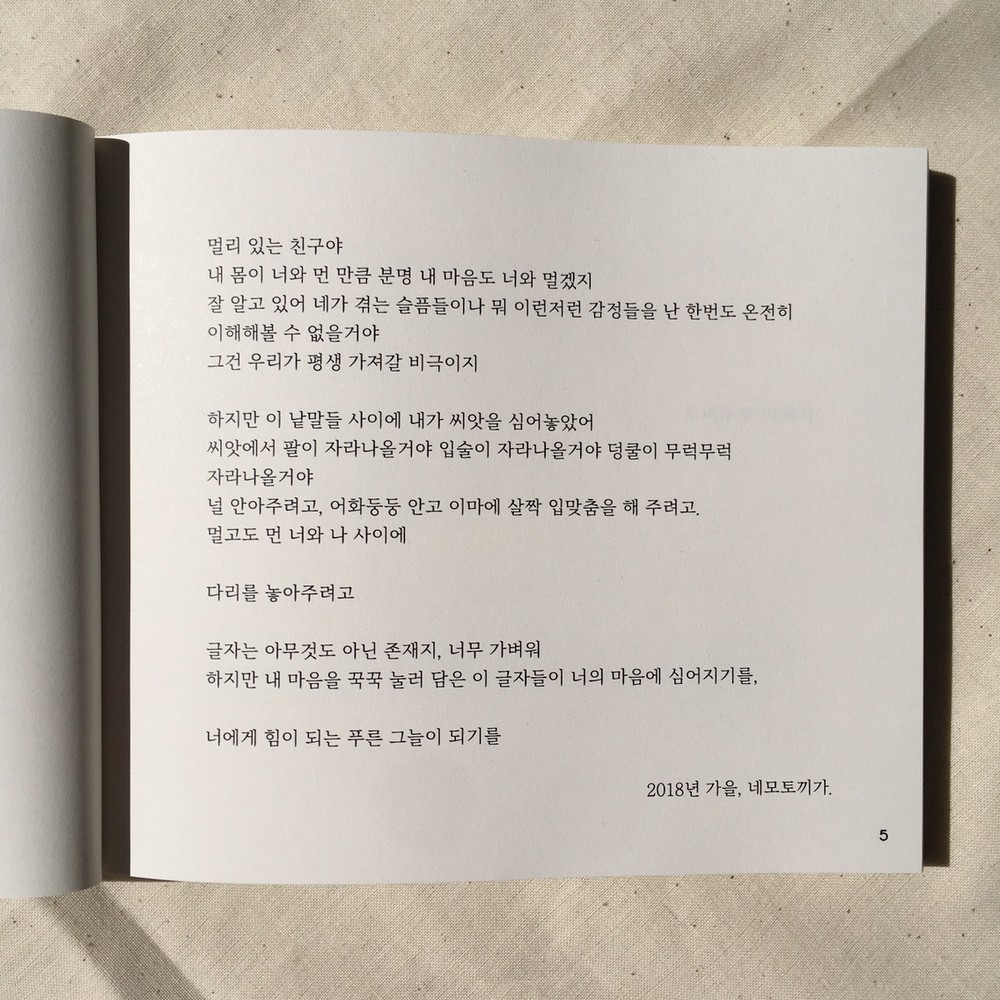 멀리 있는 친구야
내 몸이 너와 먼 만큼 분명 내 마음도 너와 멀겠지
잘 알고 있어 네가 겪는 슬픔들이나 뭐 이런저런 감정들을 난 한번도 온전히
이해해볼 수 없을거야
그건 우리가 평생 가져갈 비극이지
하지만 이 낱말들 사이에 내가 씨앗을 심어놓았어
씨앗에서 팔이 자라나올거야 입술이 자라나올거야 덩쿨이 무럭무럭
자라나올거야
널 안아주려고, 어화둥둥 안고 이마에 살짝 입맞춤을 해 주려고.
멀고도 먼 너와 나 사이에
다리를 놓아주려고
글자는 아무것도 아닌 존재지, 너무 가벼워
하지만 내 마음을 꾹꾹 눌러 담은 이 글자들이 너의 마음에 심어지기를,
너에게 힘이 되는 푸른 그늘이 되기를
2018년 가을, 네모토끼가.
5